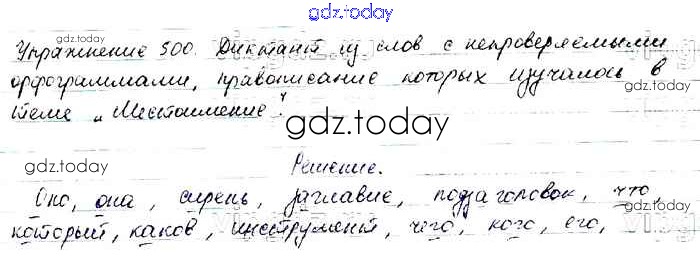 gdz.today
Упражнение 500. Диктант из слов с непроверяемыми
gdz.today
орфограммами, правописание которых изучалось в
теме „Местоимение".
gdz.today
gdz.today
Решение.
Оно, она, сирень, заглавие, подзаголовок, что,
который, каков, инструмент, чего, кого, его,
gdz.today